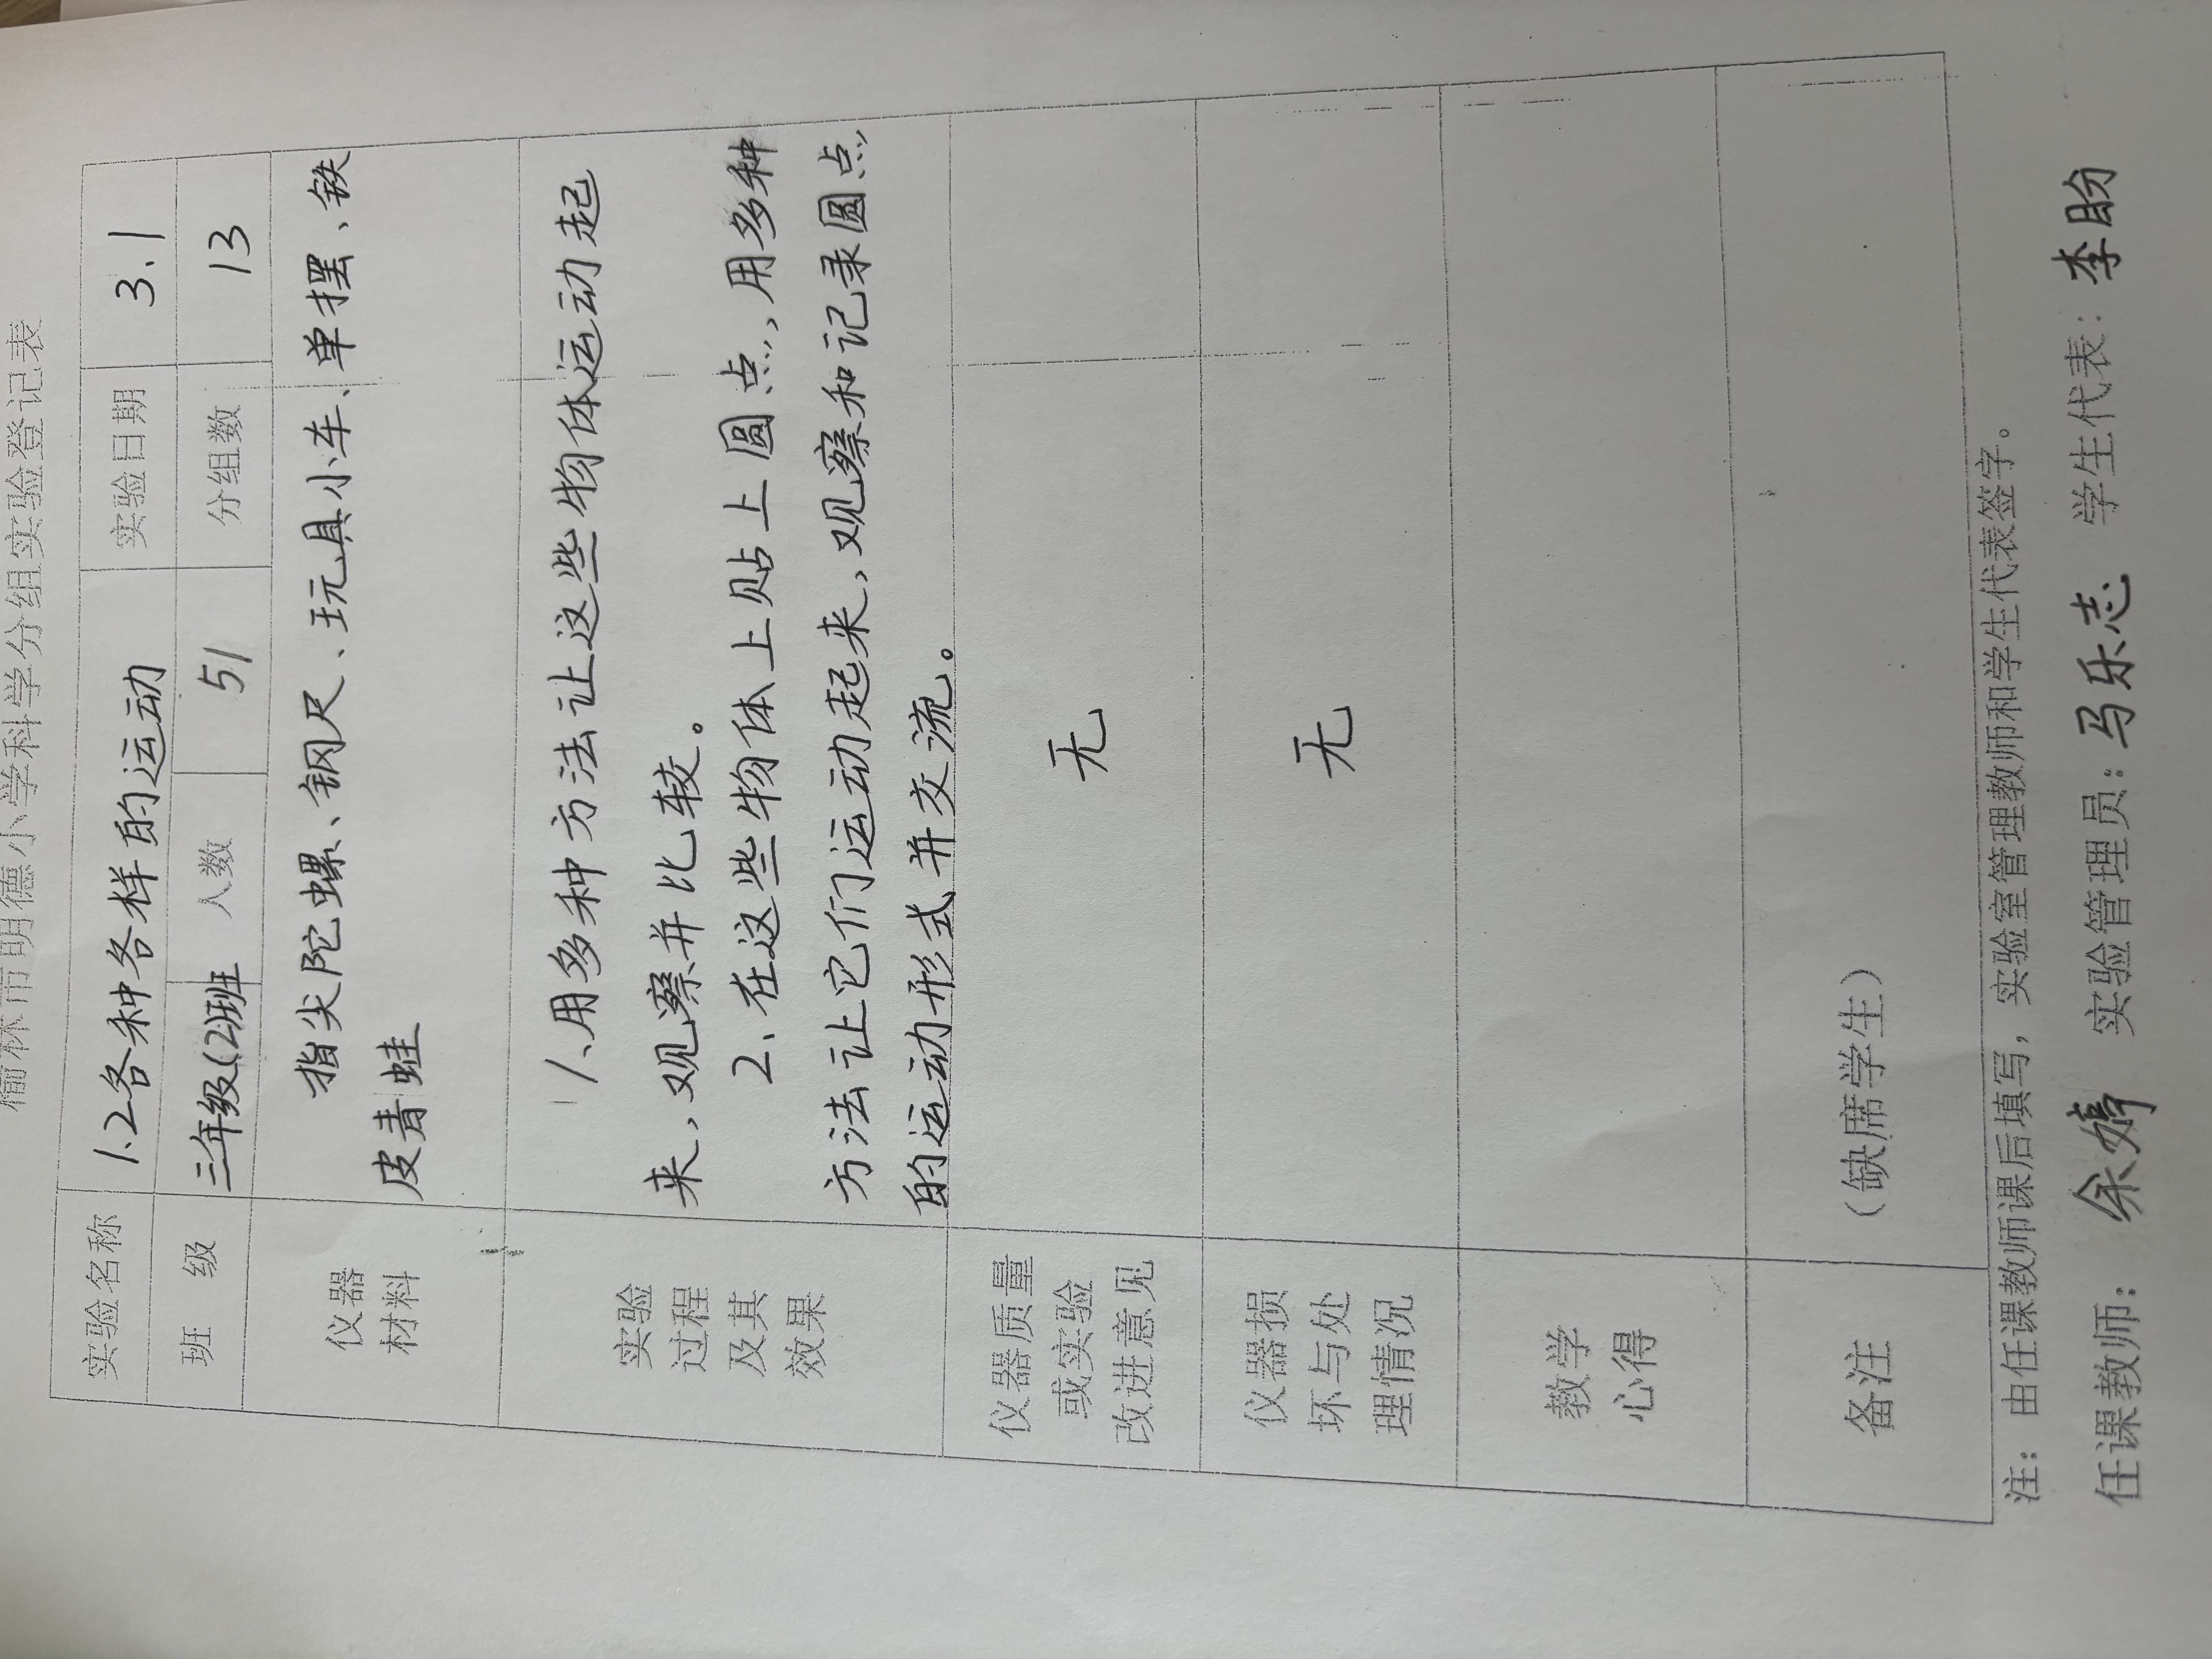 榆林市明德小学科学分组实验登记表
实验名称 1.2各种各样的运动 实验日期 3.1
班 级 三年级(2)班 人数 51 分组数 13
仪器
材料
指尖陀螺、钢尺、玩具小车、单摆、铁
皮青蛙
实验
过程
及其
效果
1、用多种方法让这些物体运动起
来，观察并比较。
2、在这些物体上贴上圆点，用多种
方法让它们运动起来，观察和记录圆点
的运动形式并交流。
仪器质量
或实验
改进意见
无
仪器损
坏与处
理情况
无
教学
心得
备注 （缺席学生）
注：由任课教师课后填写，实验室管理教师和学生代表签字。
任课教师：余婷 实验管理员：马乐志 学生代表：李盼